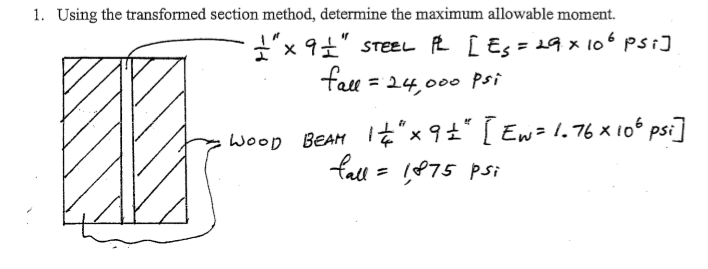 1. Using the transformed section method, determine the maximum allowable moment.
½" x 9½" STEEL PL [Es = 29 x 10⁶ psi]
fall = 24,000 psi
WOOD BEAM 1¼" x 9½" [Ew = 1.76 x 10⁶ psi]
fall = 1,875 psi